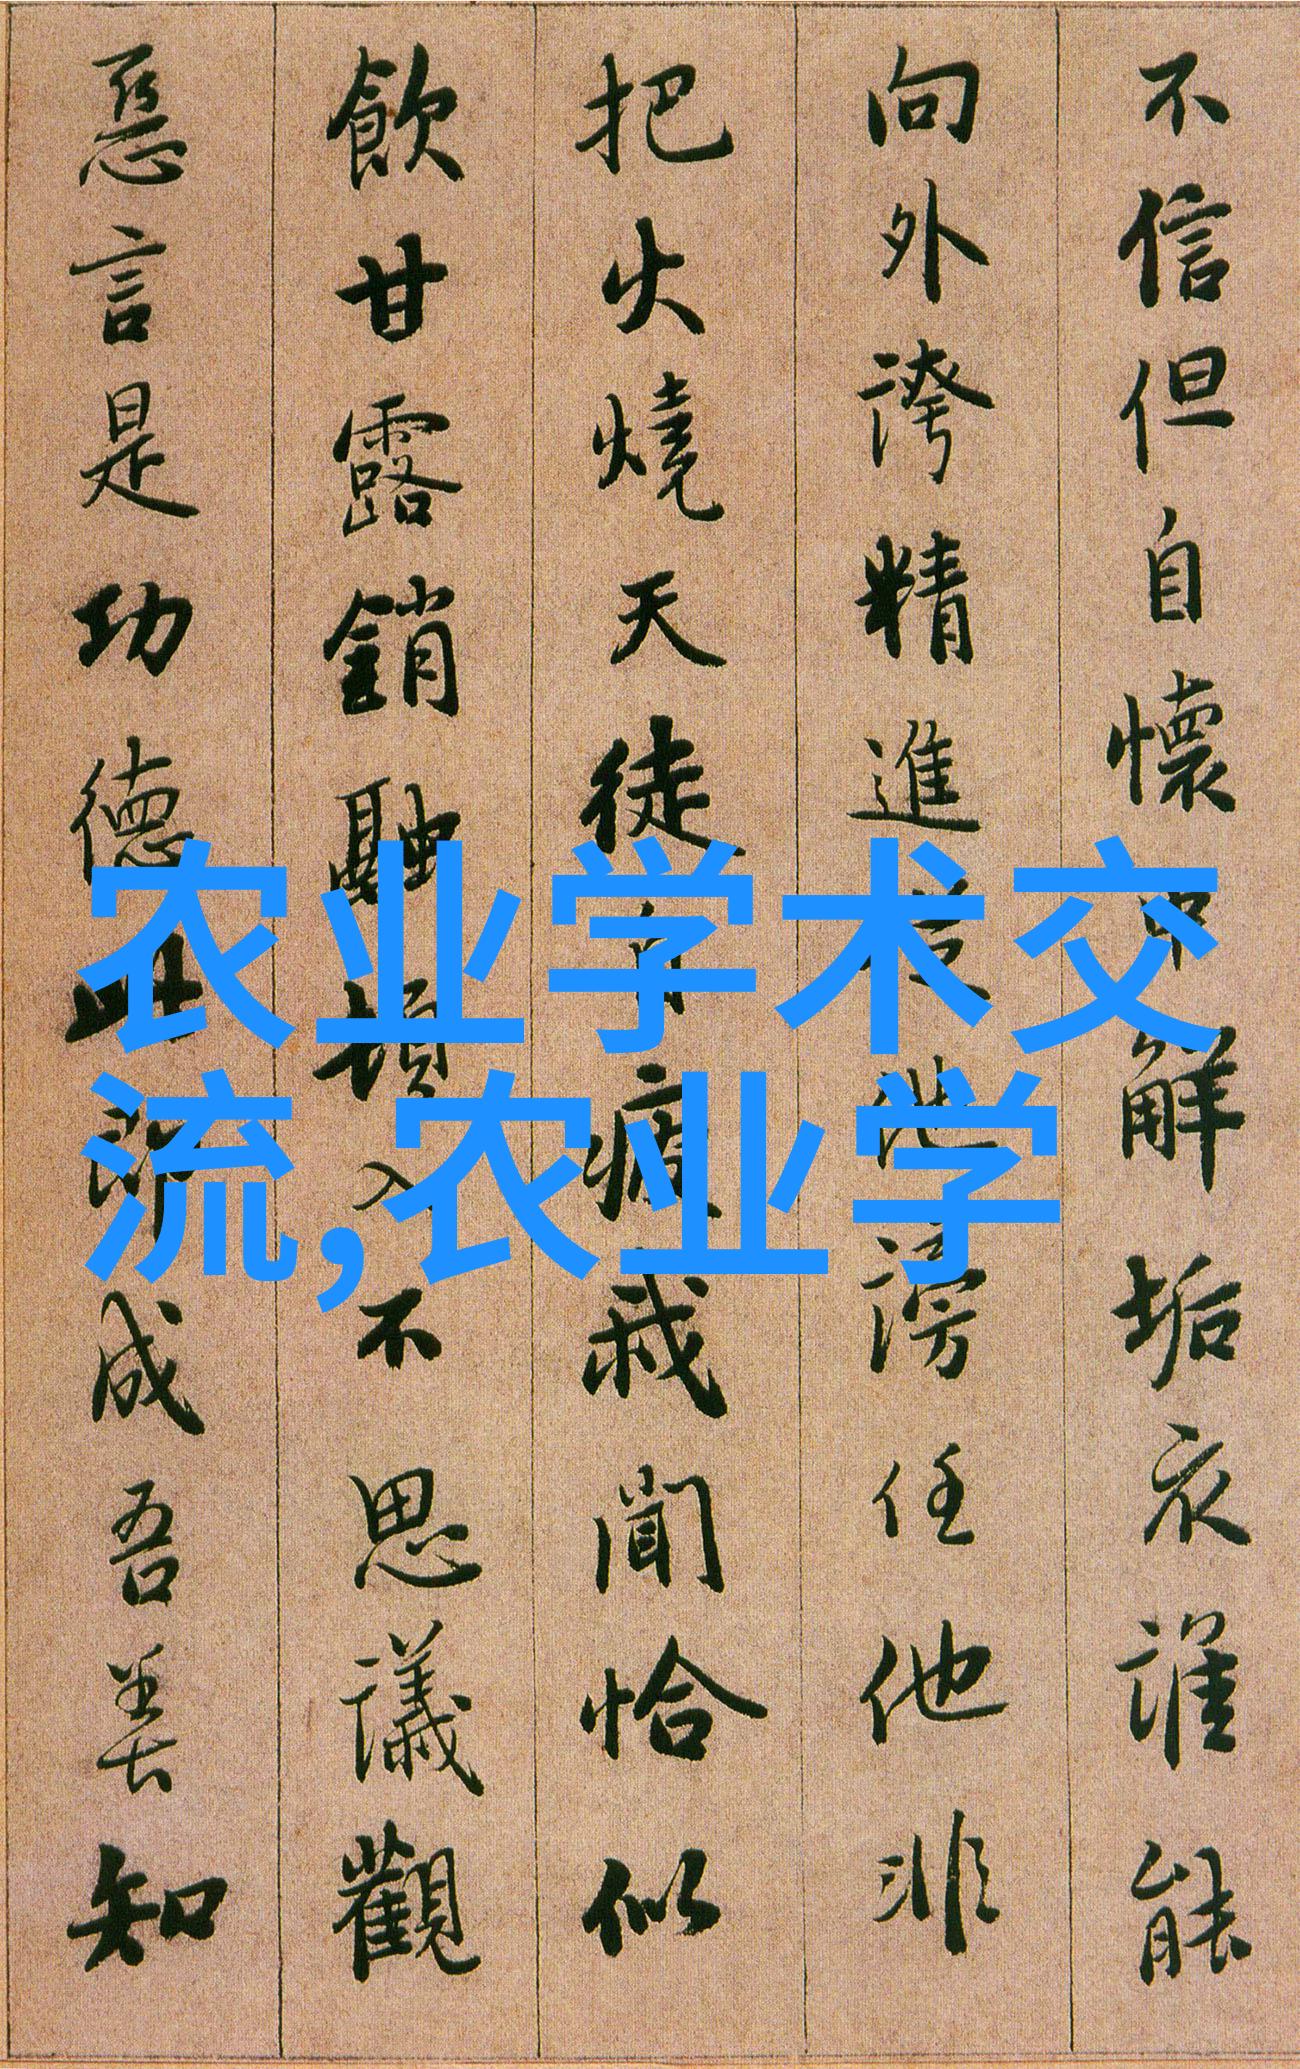 不信但自懷中解垢衣誰能
向外誇精進從他謗任他非
把火燒天徒自疲我聞恰似
飲甘露銷融頓入不思議觀
惡言是功德此即成吾善知
农业学术交
流,农业学